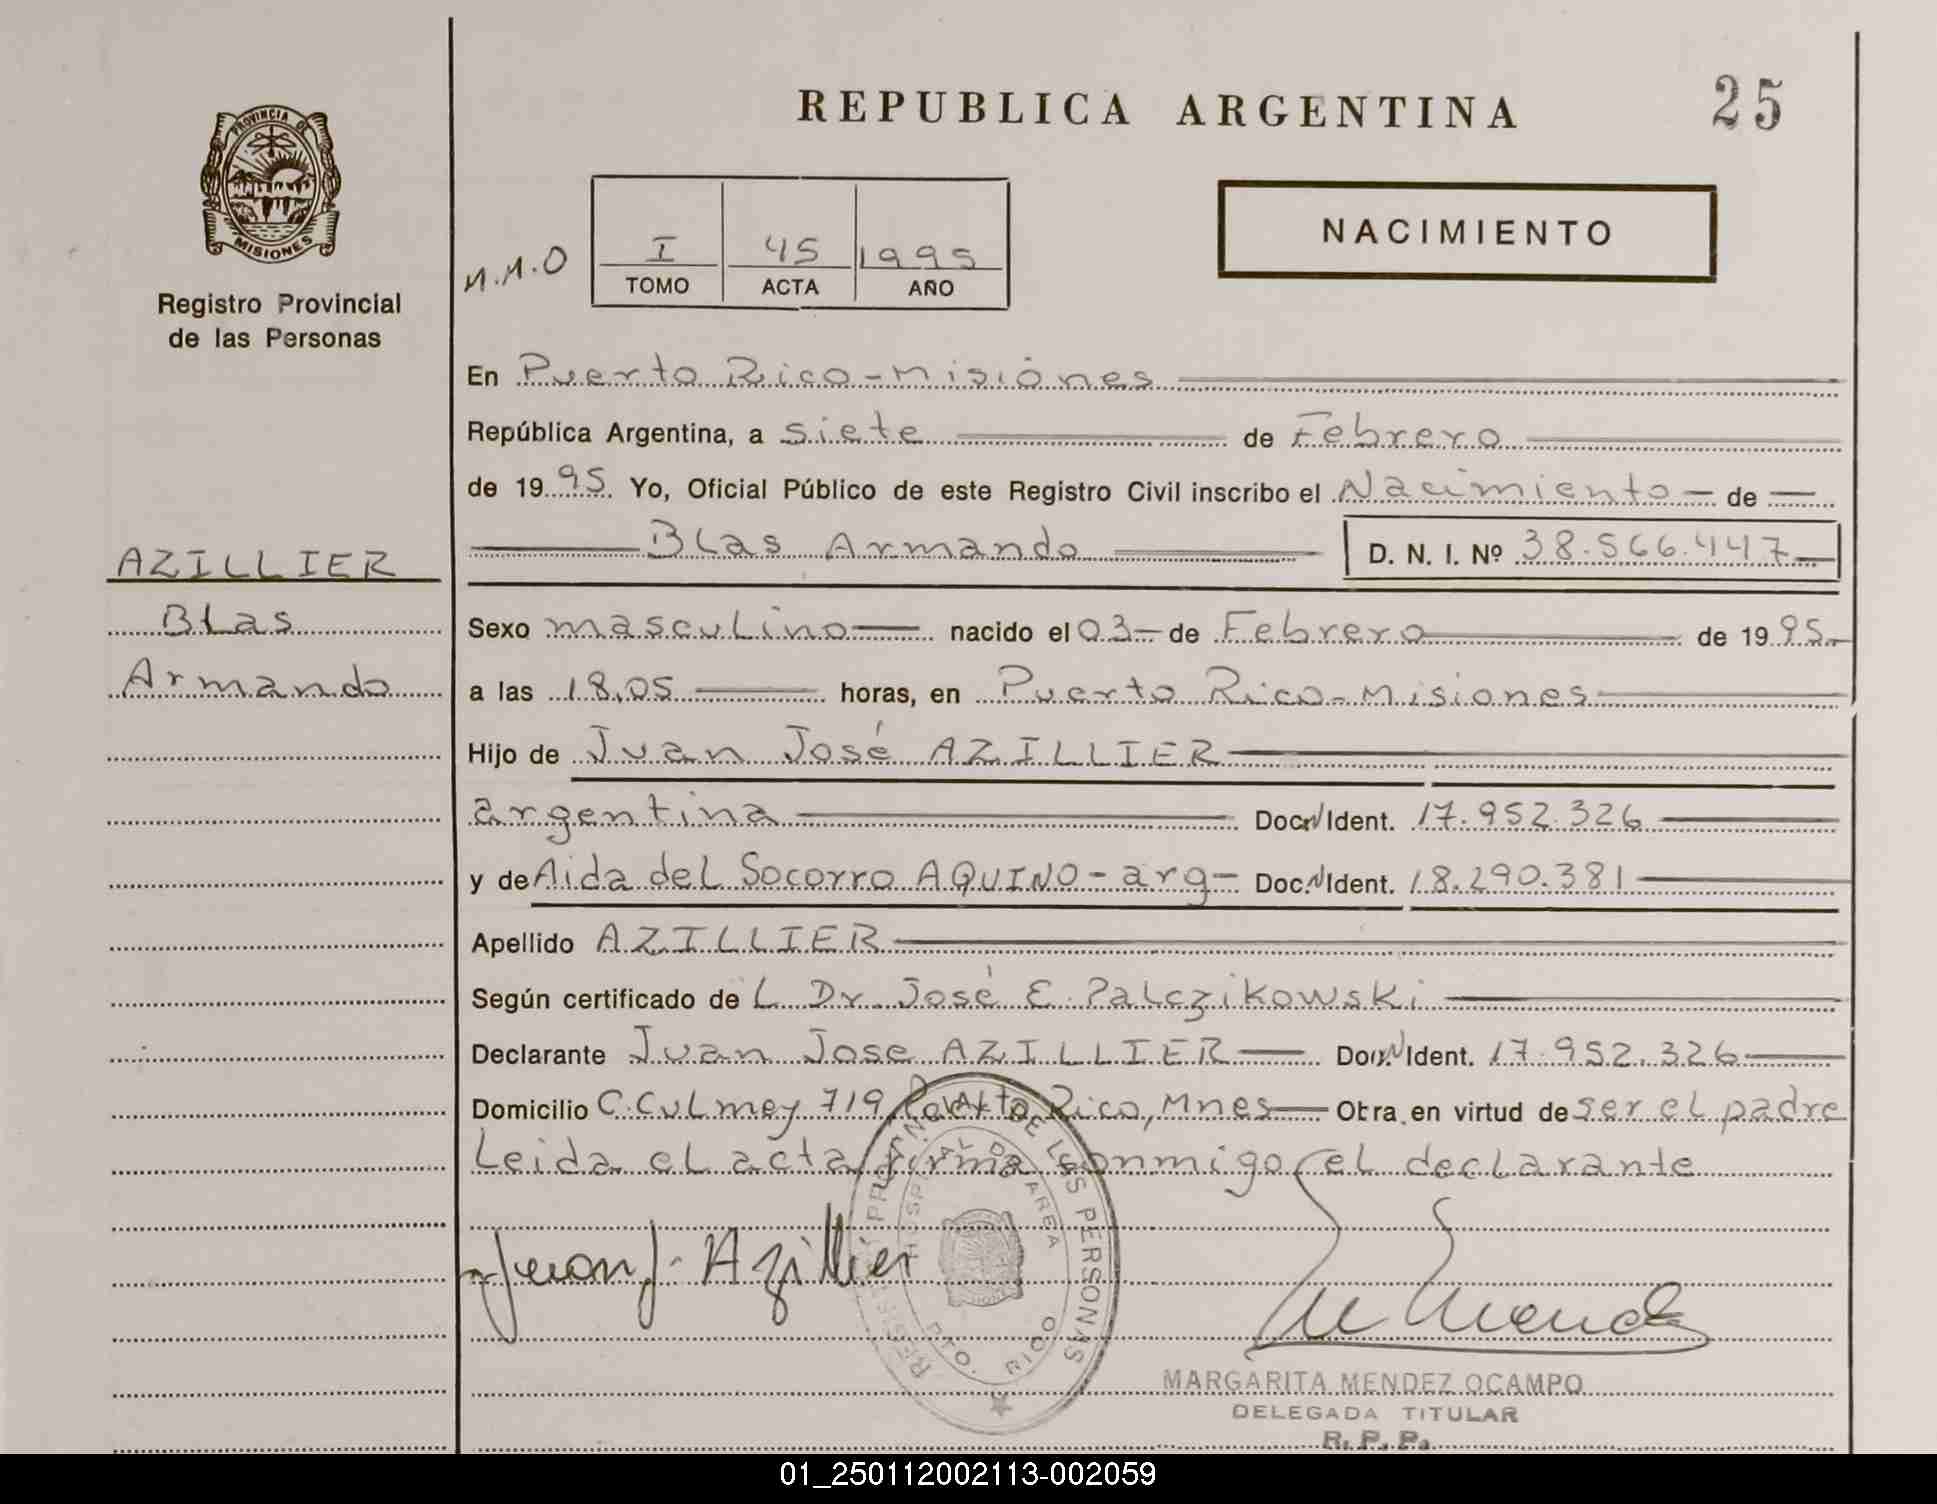 REPUBLICA ARGENTINA
25
PROVINCIA DE
MISIONES
Registro Provincial
de las Personas
M.M.O
I 45 1995
TOMO ACTA AÑO
NACIMIENTO
En Puerto Rico-Misiones
República Argentina, a siete de Febrero
de 1995. Yo, Oficial Público de este Registro Civil inscribo el Nacimiento - de
Blas Armando D. N. I. Nº 38.566.447
AZILLIER
Blas
Armando
Sexo masculino nacido el 03 - de Febrero de 1995.
a las 18,05 horas, en Puerto Rico-Misiones
Hijo de Juan José AZILLIER
argentina Doc. N Ident. 17.952.326
y de Aida del Socorro AQUINO - arg - Doc. N Ident. 18.290.381
Apellido AZILLIER
Según certificado de L Dr. José E. Palczikowski
Declarante Juan Jose AZILLIER Doc. N Ident. 17.952.326
Domicilio C. Culmey 719 Puerto Rico, Mnes Otra, en virtud de ser el padre
Leida el acta firma conmigo el declarante
Juan J. Azillier
REGISTRO PROVINCIAL DE LAS PERSONAS
HOSPITAL DE AREA
PTO. RICO
MARGARITA MENDEZ OCAMPO
DELEGADA TITULAR
R. P. P.
01_250112002113-002059